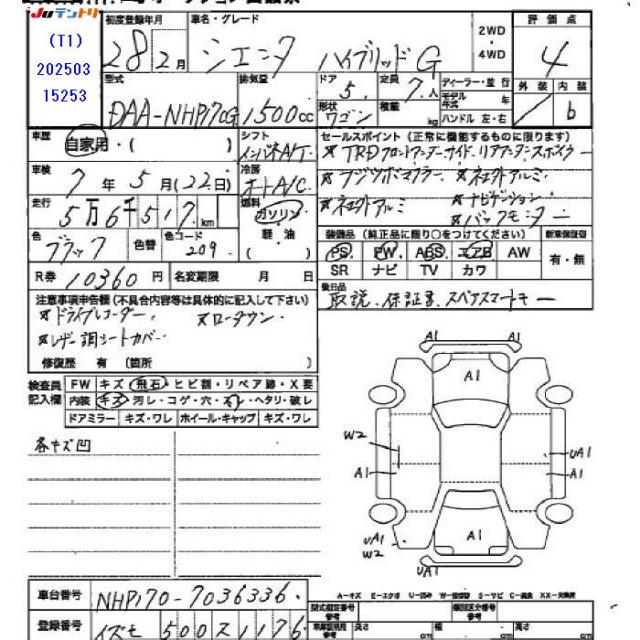 JUテントリ
(T1)
202503
15253
初度登録年月 車名・グレード 2WD・4WD 評価点
28年2月 シエンタ ハイブリッドG 4
型式 排気量 ドア 定員 ディーラー・並行 外装 内装
DAA-NHP170G 1500cc 5 7人 モデル年式 年 b
形状 ワゴン 積載 kg ハンドル 左・右
車歴 自家用・( ) シフト インパネA/T
セールスポイント (正常に機能するものに限ります)
※TRDフロントアンダーサイド・リアアンダースポイラー
車検 7年5月(22日) 冷房 オートA/C
※フジツボマフラー ※社外アルミ
走行 5万6千517km 燃料 ガソリン・軽・油( )
※ナビゲーション
※バックモニター
色 ブラック 色替 色コード 209
装備品 (純正品に限り○をつけてください) 新車保証書
PS PW ABS エアB AW 有・無
SR ナビ TV カワ
R券 10360円 名変期限 月 日
後日品
取説、保証書、スペアスマートキー
注意事項申告欄 (不具合内容等は具体的に記入して下さい)
※ドライブレコーダー ※ローダウン
※レザー調シートカバー
修復歴 有 (箇所 )
検査員記入欄
FW キズ・飛石・ヒビ割・リペア跡・X要
内装 キズ・汚レ・コゲ・穴・スレ・ヘタリ・破レ
ドアミラー キズ・ワレ ホイール・キャップ キズ・ワレ
各キズ凹
A1 A1
A1
W2 UA1
A1 A1
A1
UA1 A1
W2
UA1
A-キズ E-エクボ U-凹み W-補修跡 S-サビ C-腐食 XX-交換済
車台番号 NHP170-7036336
型式指定番号 類別区分番号
登録番号 イズモ 500 ス 1176
長さ cm 幅 cm 高さ cm